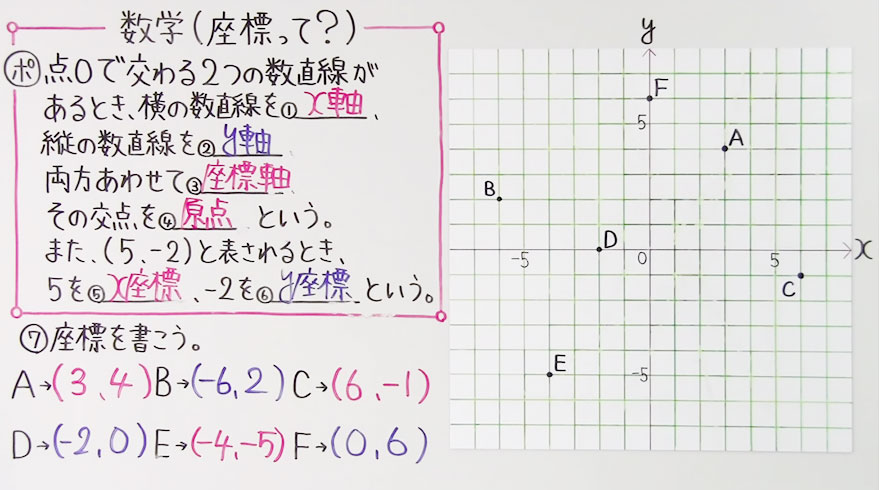 数学(座標って?)
ポ 点0で交わる2つの数直線が
あるとき、横の数直線を①x軸、
縦の数直線を②y軸、
両方あわせて③座標軸、
その交点を④原点 という。
また、(5、-2)と表されるとき、
5を⑤x座標、-2を⑥y座標 という。
⑦座標を書こう。
A→(3、4) B→(-6,2) C→(6、-1)
D→(-2,0) E→(-4,-5) F→(0,6)
y
F
5
A
B
D
-5
0
5
x
C
E
-5